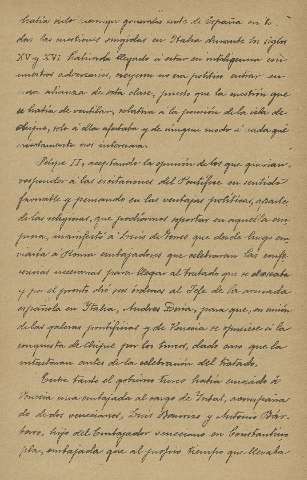 había sido siempre generales suelto de España en to
das las cuestiones surgidas en Italia durante los siglos
XV y XVI. Habiendo llegado a estar en inteligencia con
nuestros adversarios, creyeron no era político entrar en
una alianza de esta clase, puesto que la cuestión que
se había de ventilar, relativa a la posesión de la isla de
Chipre, solo a ella afectaba y de ningun modo a nada que
directamente nos interesara.
Felipe II, aceptando la opinión de los que querian
responder á las excitaciones del Pontífice en sentido
favorable y pensando en las ventajas políticas, aparte
de las religiosas, que podríamos reportar en aquella em
presa, manifestó a Luis de Torres que desde luego en
viaría á Roma embajadores que celebraran las confe
rencias necesarias para llegar al tratado que se deseaba
y por el pronto dió sus órdenes al Jefe de la armada
española en Italia, Andrea Doria, para que, en unión
de las galeras pontificias y de Venecia se opusiese á la
conquista de Chipre por los turcos, dado caso que la
intentaran antes de la celebración del tratado.
Entre tanto el gobierno turco había enviado á
Venecia una embajada al cargo de Cubat, acompaña
do de dos venecianos, Luis y Antonio Bár
baro, hijo del Embajador veneciano en Constantino
pla, embajada que al propio tiempo que llevaba